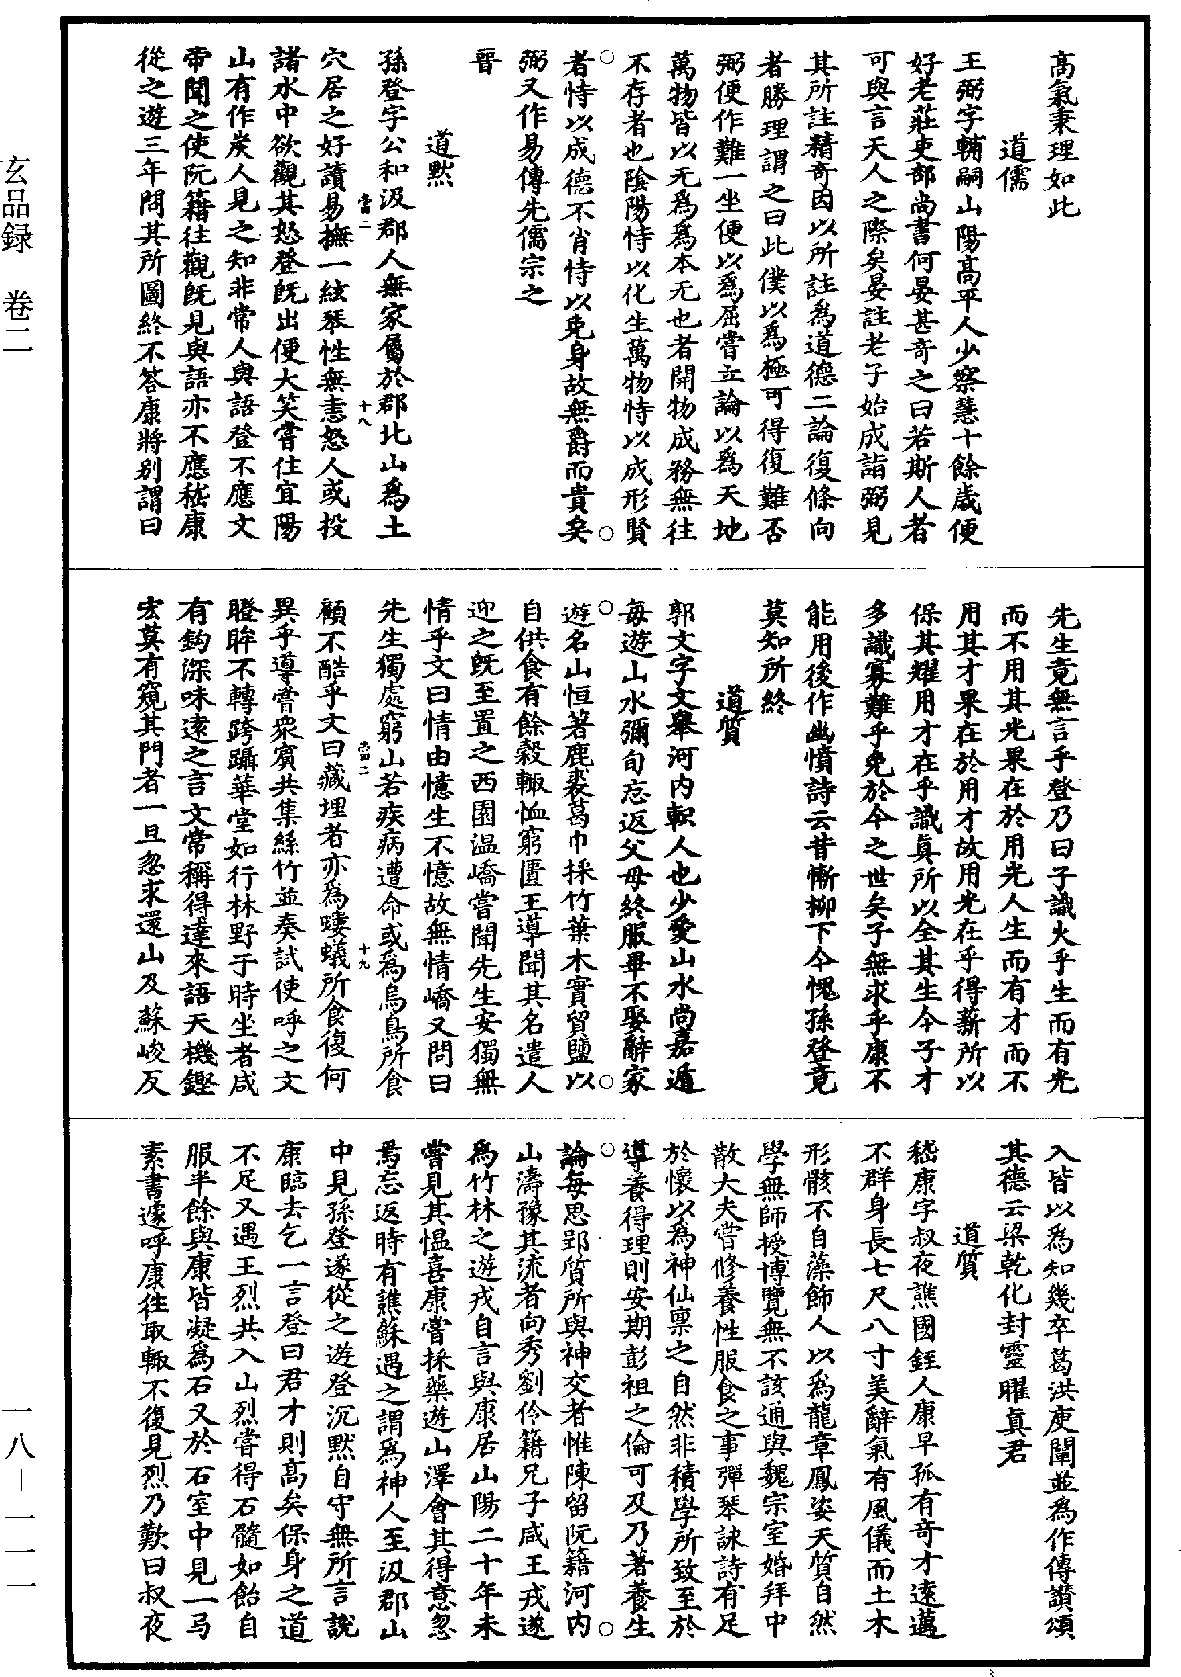 高氣秉理如此
道儒
王弼字輔嗣山陽高平人少察慧十餘歲便
好老莊吏部尚書何晏甚奇之曰若斯人者
可與言天人之際矣晏註老子始成詣弼見
其所註精奇因以所註爲道德二論復條向
者勝理謂之曰此僕以爲極可得復難否
弼便作難一坐便以爲屈嘗立論以爲天地
萬物皆以无爲爲本无也者開物成務無往
不存者也陰陽恃以化生萬物恃以成形賢
者恃以成德不肖恃以免身故無爵而貴矣
弼又作易傳先儒宗之
晉
道默
孫登字公和汲郡人無家屬於郡北山爲土
穴居之好讀易撫一絃琴性無恚怒人或投
諸水中欲觀其怒登既出便大笑嘗住宜陽
山有作炭人見之知非常人與語登不應文
帝聞之使阮籍往觀既見與語亦不應嵇康
從之遊三年問其所圖終不答康將别謂曰
先生竟無言乎登乃曰子識火乎生而有光
而不用其光果在於用光人生而有才而不
用其才果在於用才故用光在乎得薪所以
保其耀用才在乎識真所以全其生今子才
多識寡難乎免於今之世矣子無求乎康不
能用後作幽憤詩云昔慚柳下今愧孫登竟
莫知所終
道質
郭文字文舉河内軹人也少愛山水尚嘉遁
每遊山水彌旬忘返父母終服畢不娶辭家
遊名山恒著鹿裘葛巾採竹葉木實貿鹽以
自供食有餘穀輙恤窮匱王導聞其名遣人
迎之既至置之西園温嶠嘗聞先生安獨無
情乎文曰情由憶生不憶故無情嶠又問曰
先生獨處窮山若疾病遭命或爲烏鳥所食
顧不酷乎文曰藏埋者亦爲螻蟻所食復何
異乎導嘗衆賓共集絲竹並奏試使呼之文
瞪眸不轉跨躡華堂如行林野于時坐者咸
有鈎深味遠之言文常稱得達來語天機鏗
宏莫有窺其門者一旦忽求還山及蘇峻反
入皆以爲知幾卒葛洪庾闡並爲作傳讚頌
其德云梁乾化封靈曜真君
道質
嵇康字叔夜譙國銍人康早孤有奇才遠邁
不群身長七尺八寸美辭氣有風儀而土木
形骸不自藻飾人以爲龍章鳳姿天質自然
學無師授博覽無不該通與魏宗室婚拜中
散大夫嘗修養性服食之事彈琴詠詩有足
於懷以爲神仙稟之自然非積學所致至於
導養得理則安期彭祖之倫可及乃著養生
論每思郢質所與神交者惟陳留阮籍河内
山濤豫其流者向秀劉伶籍兄子咸王戎遂
爲竹林之遊戎自言與康居山陽二十年未
嘗見其愠喜康嘗採藥遊山澤會其得意忽
焉忘返時有譙蘇遇之謂爲神人至汲郡山
中見孫登遂從之遊登沉默自守無所言說
康臨去乞一言登曰君才則高矣保身之道
不足又遇王烈共入山烈嘗得石髓如飴自
服半餘與康皆凝爲石又於石室中見一弓
素書遽呼康往取輙不復見烈乃歎曰叔夜
玄品録 卷二
一八－一一一